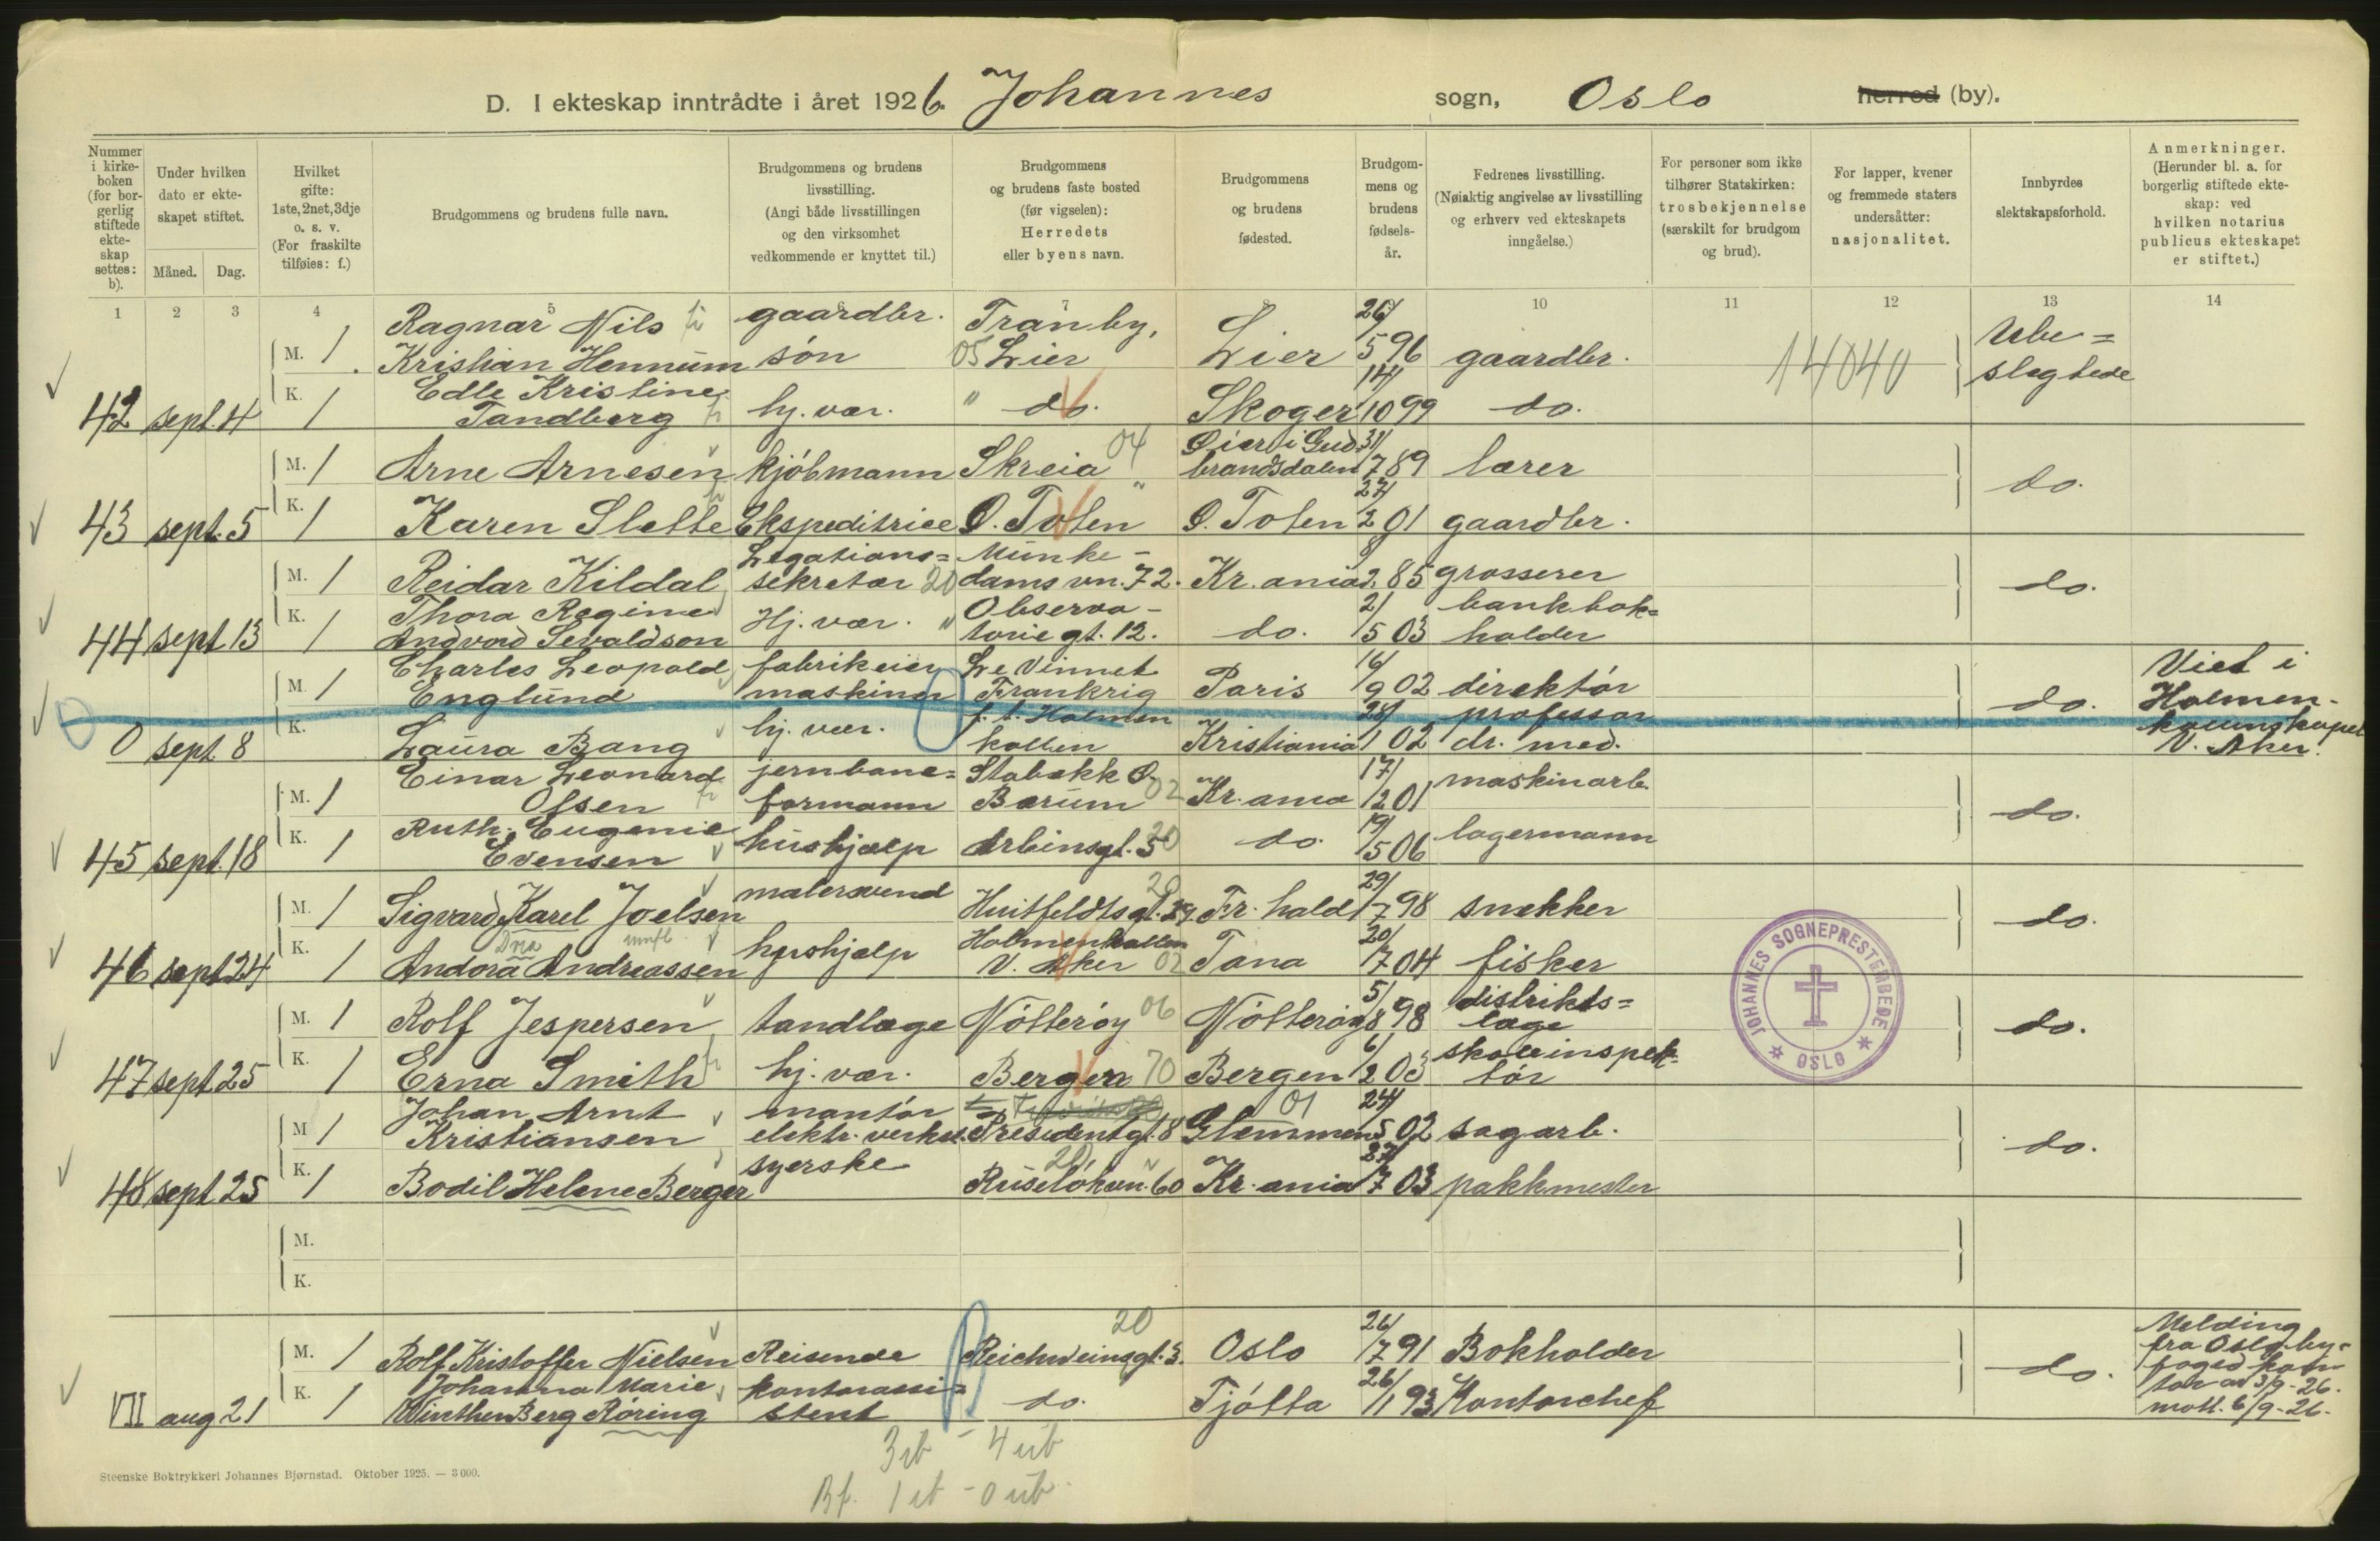 D. I ekteskap inntrådte i året 1926. Johannes sogn, Oslo herred (by).
Nummer i kirkeboken (for borgerlig stiftede ekteskap settes: b).
Under hvilken dato er ekteskapet stiftet.
Måned. Dag.
Hvilket gifte: 1ste, 2net, 3dje o. s. v. (For fraskilte tilføies: f.)
Brudgommens og brudens fulle navn.
Brudgommens og brudens livsstilling. (Angi både livsstillingen og den virksomhet vedkommende er knyttet til.)
Brudgommens og brudens faste bosted (før vigselen): Herredets eller byens navn.
Brudgommens og brudens fødested.
Brudgommens og brudens fødselsår.
Fedrenes livsstilling. (Nøiaktig angivelse av livsstilling og erhverv ved ekteskapets inngåelse.)
For personer som ikke tilhører Statskirken: trosbekjennelse (særskilt for brudgom og brud).
For lapper, kvener og fremmede staters undersåtter: nasjonalitet.
Innbyrdes slektskapsforhold.
Anmerkninger. (Herunder bl. a. for borgerlig stiftede ekteskap: ved hvilken notarius publicus ekteskapet er stiftet.)
1 2 3 4 5 6 7 8 10 11 12 13 14
M. 1 Ragnar Nils Kristian Hennum gaardbr. søn Tranby, 05 Lier Lier 26/5 96 gaardbr. 14040 Ube=slegtede
42 sept. 4 K. 1 Edle Kristine Tandberg hj. vær. " do. Skoger 14/10 99 do.
M. 1 Arne Arnesen kjøbmann Skreia 04 Øier i Gudbrandsdalen 31/7 89 lærer do.
43 sept. 5 K. 1 Karen Slette Ekspeditrice Ø. Toten " Ø. Toten 27/2 01 gaardbr.
M. 1 Reidar Kildal Legations=sekretær 20 Munke-damsvn. 72. Kr.ania 9/2 85 grosserer do.
44 sept 13 K. 1 Thora Regine Andvord Sevaldson Hj. vær. " Observa-torie gt. 12. do. 2/5 03 bankbok=holder
M. 1 Charles Leopold Englund fabrikeier maskiner Le Vinnet Frankrig Paris 16/9 02 direktør do. Viet i Holmen-kollenskapel V. Aker.
0 sept 8 K. Laura Bang hj. vær. f. t. Holmenkollen Kristiania 28/1 02 professor dr. med.
M. 1 Einar Leonard Olsen jernbane=formann Stabekk Ø. Bærum 02 Kr.ania 17/12 01 maskinarb. do.
45 sept. 18 K. 1 Ruth Eugenie Evensen hushjælp Arbinsgt. 5 20 do. 19/5 06 lagermann
M. 1 Sigvard Karel Joelsen malersvend Huitfeldtsgt. 29. 20 Fr. hald 29/7 98 snekker do.
46 sept 24 K. 1 Andora Andreassen hushjælp Holmenkollen V. Aker 02 Tana 20/7 04 fisker
M. 1 Rolf Jespersen tandlæge Nøtterøy 06 Nøtterøy 5/8 98 distrikts=læge do.
47 sept 25 K. 1 Erna Smith hj. vær. Bergen 70 Bergen 6/2 03 skoleinspek-tør
M 1 Johan Arnt Kristiansen montør elektr. verket. Presidentgt. 8 Glemmen 01 24/5 02 sagarb. do.
48 sept 25 K. 1 Bodil Helene Berger syerske 20 Ruseløkvn. 60 Kr.ania 27/7 03 pakkmester
M.
K.
M. 1 Rolf Kristoffer Nielsen Reisende Reichweinsgt. 3. 20 Oslo 26/7 91 Bokholder do. Melding fra Oslo by-foged kon-tor av 3/9-26. mott. 6/9-26.
VII aug 21 K. 1 Johanna Marie Winther Berg Røring kontorassi=stent do. Tjøtta 26/1 93 Kontorchef
JOHANNES SOGNEPRESTEMBEDE
OSLO
Steenske Boktrykkeri Johannes Bjørnstad. Oktober 1925. — 3 000.
3 ib - 4 ub
Bf. 1 ib - 0 ub.